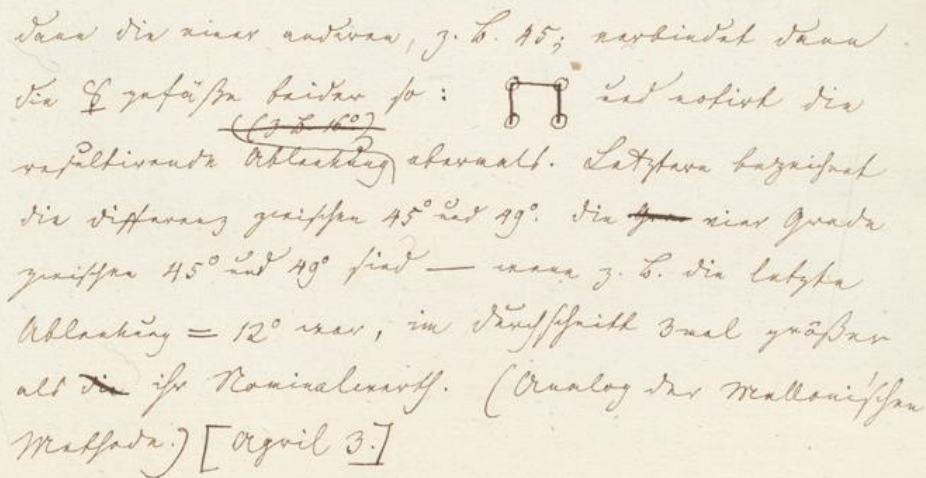 dann die einer anderen, z. B. 45; verbindet dann
die ☿ gefäße beider so: und notirt die
(z. B. 16°)
resultirende Ablenkung abermals. Letztere bezeichnet
die Differenz zwischen 45° und 49°. Die vier Grade
zwischen 45° und 49° sind — wenn z. B. die letzte
Ablenkung = 12° war, im Durchschnitt 3mal größer
als ihr Nominalwerth. (Analog der Melloni'schen
Methode.) [April 3.]